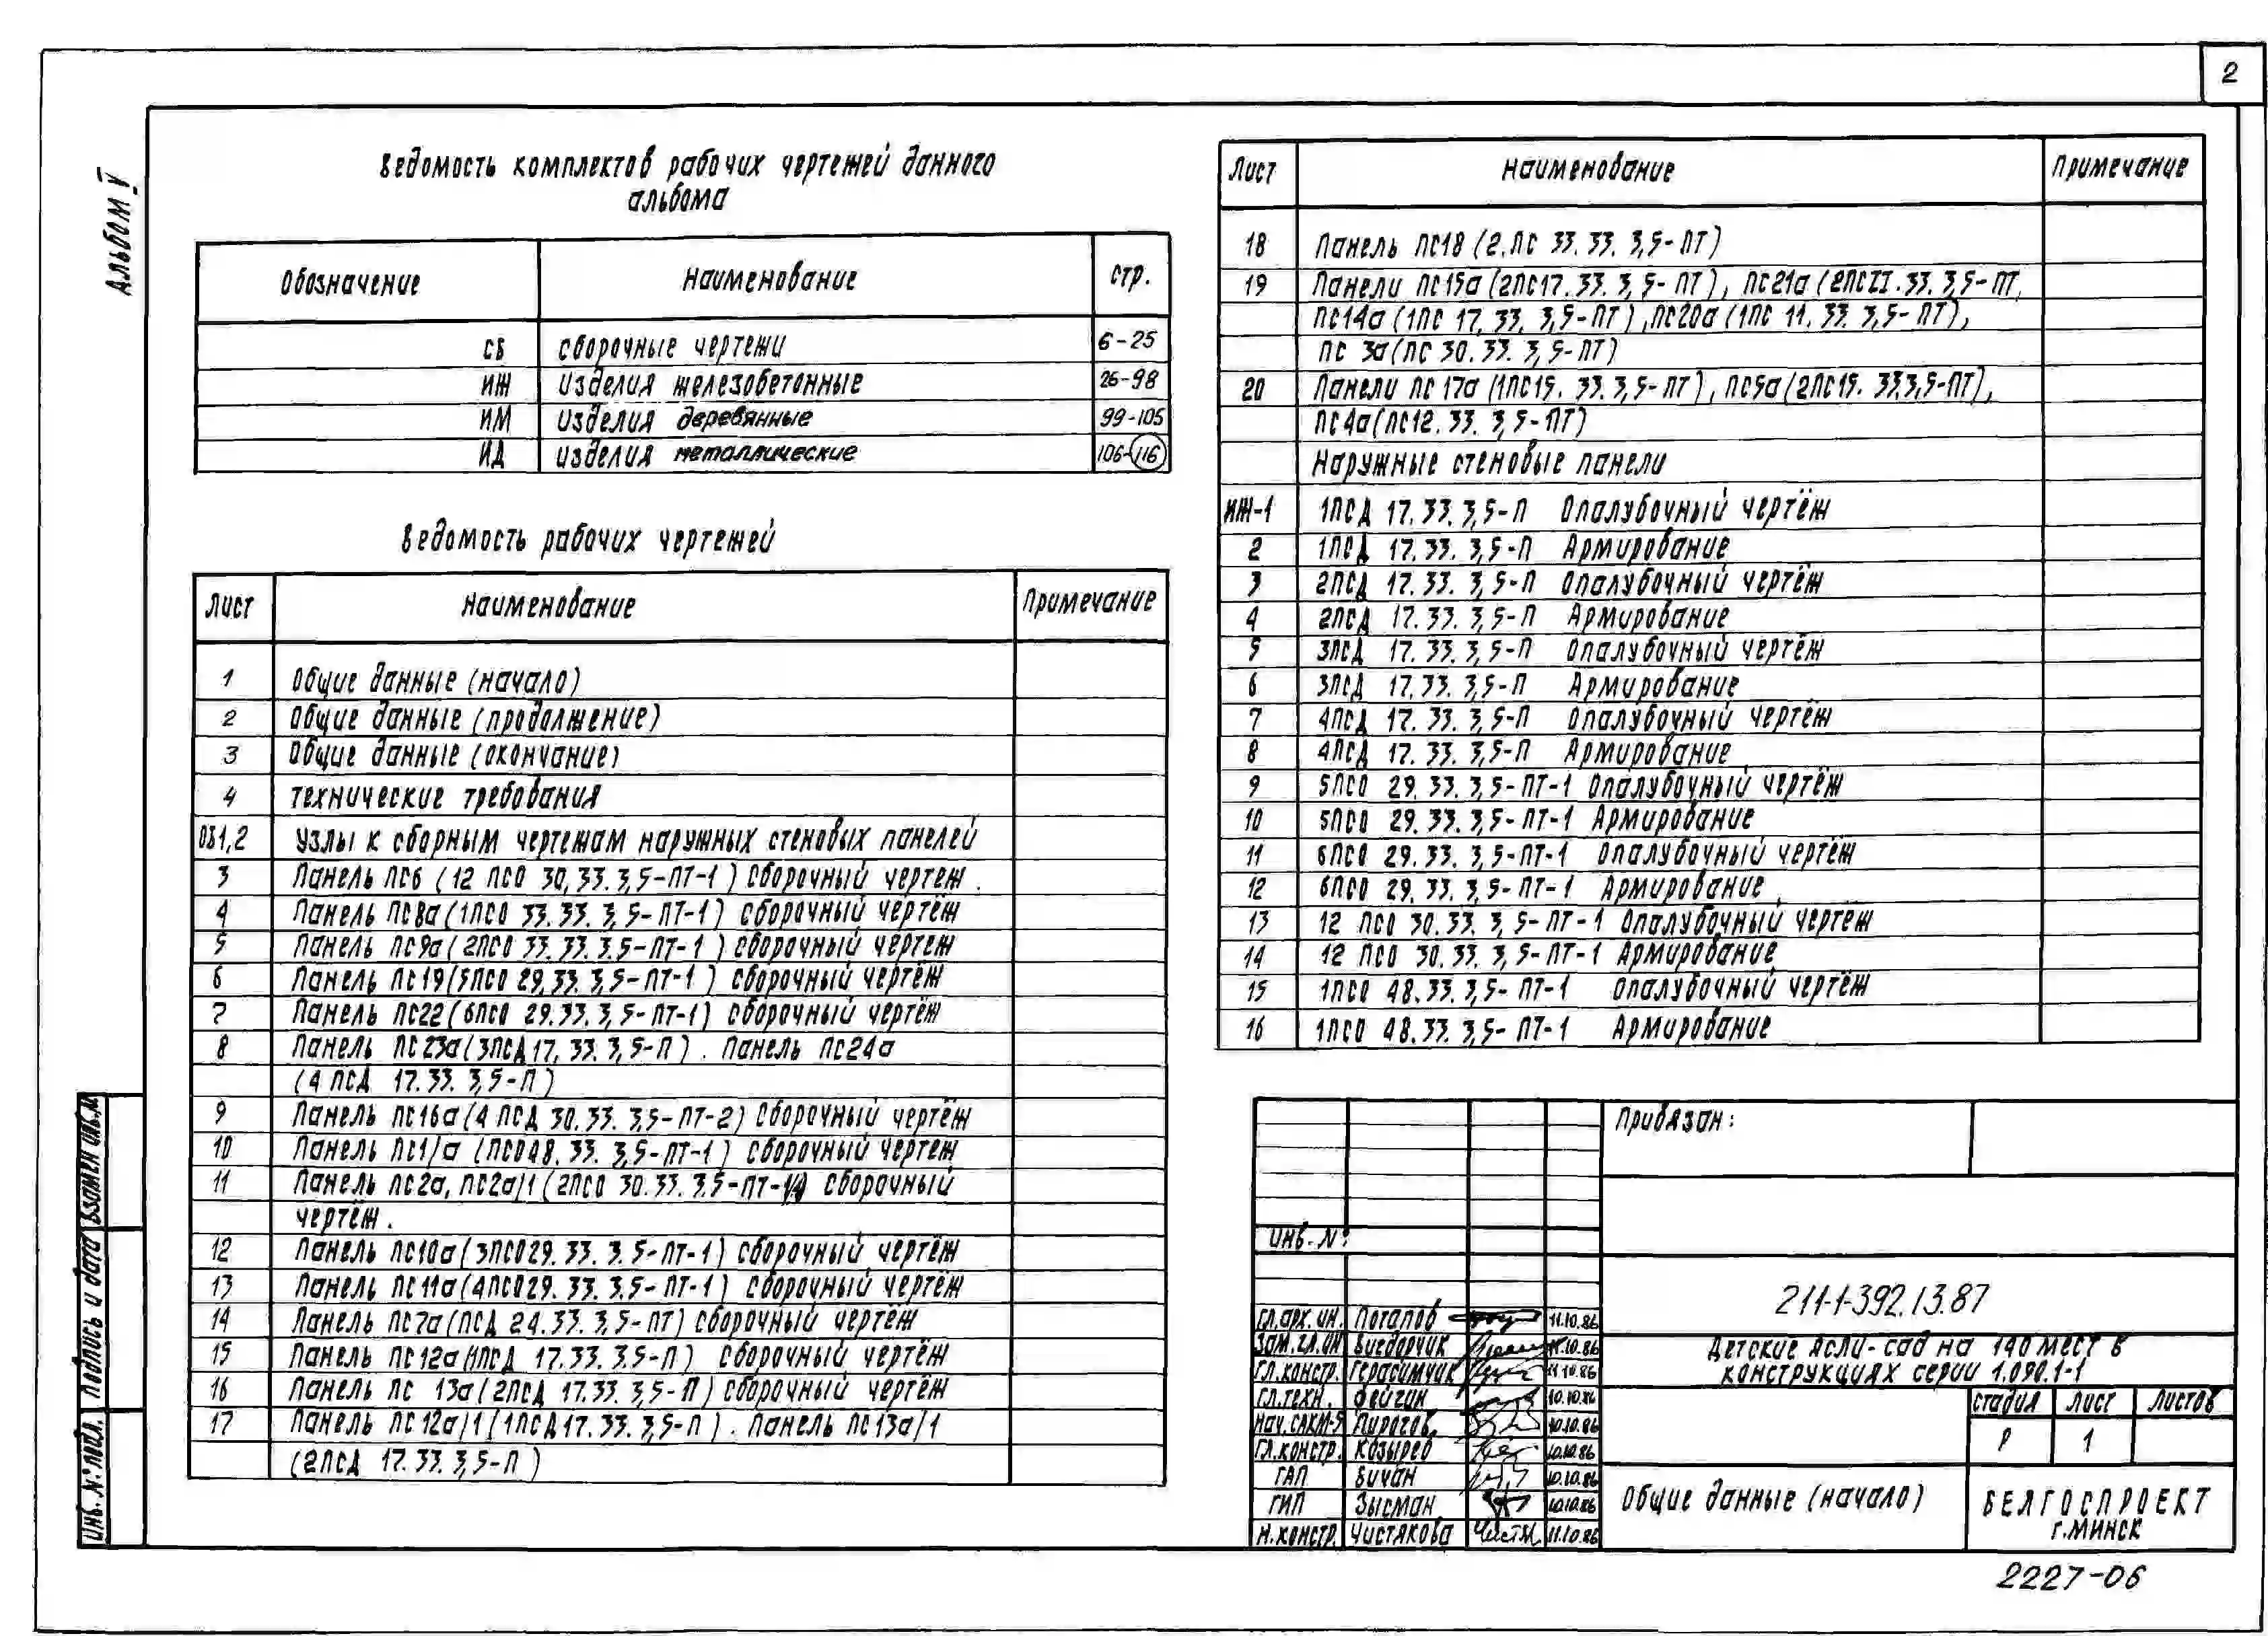 2
Альбом V
Ведомость комплектов рабочих чертежей данного
альбома
Обозначение Наименование стр.
СБ сборочные чертежи 6-25
ИЖ изделия железобетонные 26-98
ИМ изделия деревянные 99-105
ИД изделия металлические 106-116
Ведомость рабочих чертежей
Лист Наименование Примечание
1 Общие данные (начало)
2 Общие данные (продолжение)
3 Общие данные (окончание)
4 Технические требования
Узлы к сборным чертежам наружных стеновых панелей
3 Панель ПС6 (12 ПСО 30.33.3,5-ПТ-1) Сборочный чертеж.
4 Панель ПС8а (1ПСО 33.33.3,5-ПТ-1) сборочный чертёж
5 Панель ПС9а (2ПСО 33.33.3.5-ПТ-1) сборочный чертеж
6 Панель ПС19 (5ПСО 29.33.3,5-ПТ-1) сборочный чертёж
7 Панель ПС22 (6ПСО 29.33.3,5-ПТ-1) сборочный чертёж
8 Панель ПС23а (3ПСД 17.33.3,5-П). Панель ПС24а
(4 ПСД 17.33.3,5-П)
9 Панель ПС16а (4 ПСД 30.33.3,5-ПТ-2) Сборочный чертёж
10 Панель ПС1/а (ПСО48.33.3,5-ПТ-1) сборочный чертеж
11 Панель ПС2а, ПС2а/1 (2ПСО 30.33.3.5-ПТ-1) сборочный
чертёж.
12 Панель ПС10а (3ПСО29.33.3.5-ПТ-1) сборочный чертёж
13 Панель ПС11а (4ПСО29.33.3.5-ПТ-1) Сборочный чертёж
14 Панель ПС7а (ПСД 24.33.3,5-ПТ) сборочный чертёж
15 Панель ПС12а (1ПСД 17.33.3.5-П) Сборочный чертёж
16 Панель ПС 13а (2ПСД 17.33.3,5-П) сборочный чертёж
17 Панель ПС12а/1 (1ПСД17.33.3,5-П). Панель ПС13а/1
(2ПСД 17.33.3,5-П)
Лист Наименование Примечание
18 Панель ПС18 (2.ПС 33.33.3,5-ПТ)
19 Панели ПС15а (2ПС17.33.3,5-ПТ), ПС21а (2ПСII.33.3,5-ПТ,
ПС14а (1ПС 17.33.3,5-ПТ), ПС20а (1ПС 11.33.3,5-ПТ),
ПС 3а (ПС 30.33.3,5-ПТ)
20 Панели ПС 17а (1ПС15.33.3,5-ПТ), ПС5а (2ПС15.33.3,5-ПТ),
ПС4а (ПС12.33.3,5-ПТ)
Наружные стеновые панели
ИЖ-1 1ПСД 17.33.3,5-П Опалубочный чертёж
2 1ПСД 17.33.3,5-П Армирование
3 2ПСД 17.33.3,5-П Опалубочный чертёж
4 2ПСД 17.33.3,5-П Армирование
5 3ПСД 17.33.3,5-П Опалубочный чертёж
6 3ПСД 17.33.3,5-П Армирование
7 4ПСД 17.33.3,5-П Опалубочный чертёж
8 4ПСД 17.33.3,5-П Армирование
9 5ПСО 29.33.3,5-ПТ-1 Опалубочный чертёж
10 5ПСО 29.33.3,5-ПТ-1 Армирование
11 6ПСО 29.33.3,5-ПТ-1 Опалубочный чертёж
12 6ПСО 29.33.3,5-ПТ-1 Армирование
13 12 ПСО 30.33.3,5-ПТ-1 Опалубочный чертёж
14 12 ПСО 30.33.3,5-ПТ-1 Армирование
15 1ПСО 48.33.3,5-ПТ-1 Опалубочный чертёж
16 1ПСО 48.33.3,5-ПТ-1 Армирование
Взамен инв.№
Подпись и дата
Инв. № подл.
Привязан:
Инв. №:
Гл.арх.ин. Потапов 11.10.86
Зам.гл.ин 11.10.86
Гл.констр. Герасимчик 11.10.86
Гл.техн. Фейгин 10.10.86
Нач.САКМ-5 Пирогов 10.10.86
Гл.констр. Козырев 10.10.86
ГАП Бичан 10.10.86
ГИП Зысман 10.10.86
Н.констр. Чистякова 11.10.86
211-1-392.13.87
Детские ясли-сад на 140 мест в
конструкциях серии 1.090.1-1
стадия лист листов
Р 1
Общие данные (начало)
БЕЛГОСПРОЕКТ
г.Минск
2227-06